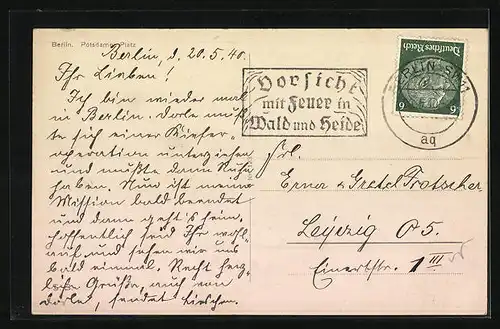 Berlin. Potsdamer Platz
Berlin, d. 20.5.40.
Ihr Lieben!
Ich bin wieder mal
in Berlin. Dorle muß-
te sich einer Kiefer-
operation unterziehen
und mußte dann Ruhe
haben. Nun ist meine
Mission bald beendet
und dann geht's heim.
Hoffentlich seid Ihr wohl-
auf und sehen wir uns
bald einmal. Recht herz-
liche Grüße, auch von
Dorle, sendet
Vorsicht
mit Feuer in
Wald und Heide
Deutsches Reich
6 6
BERLIN SW 11
aq
Frl.
Erna & Gretel Trotscher
Leipzig O5.
Einertstr. 1 III